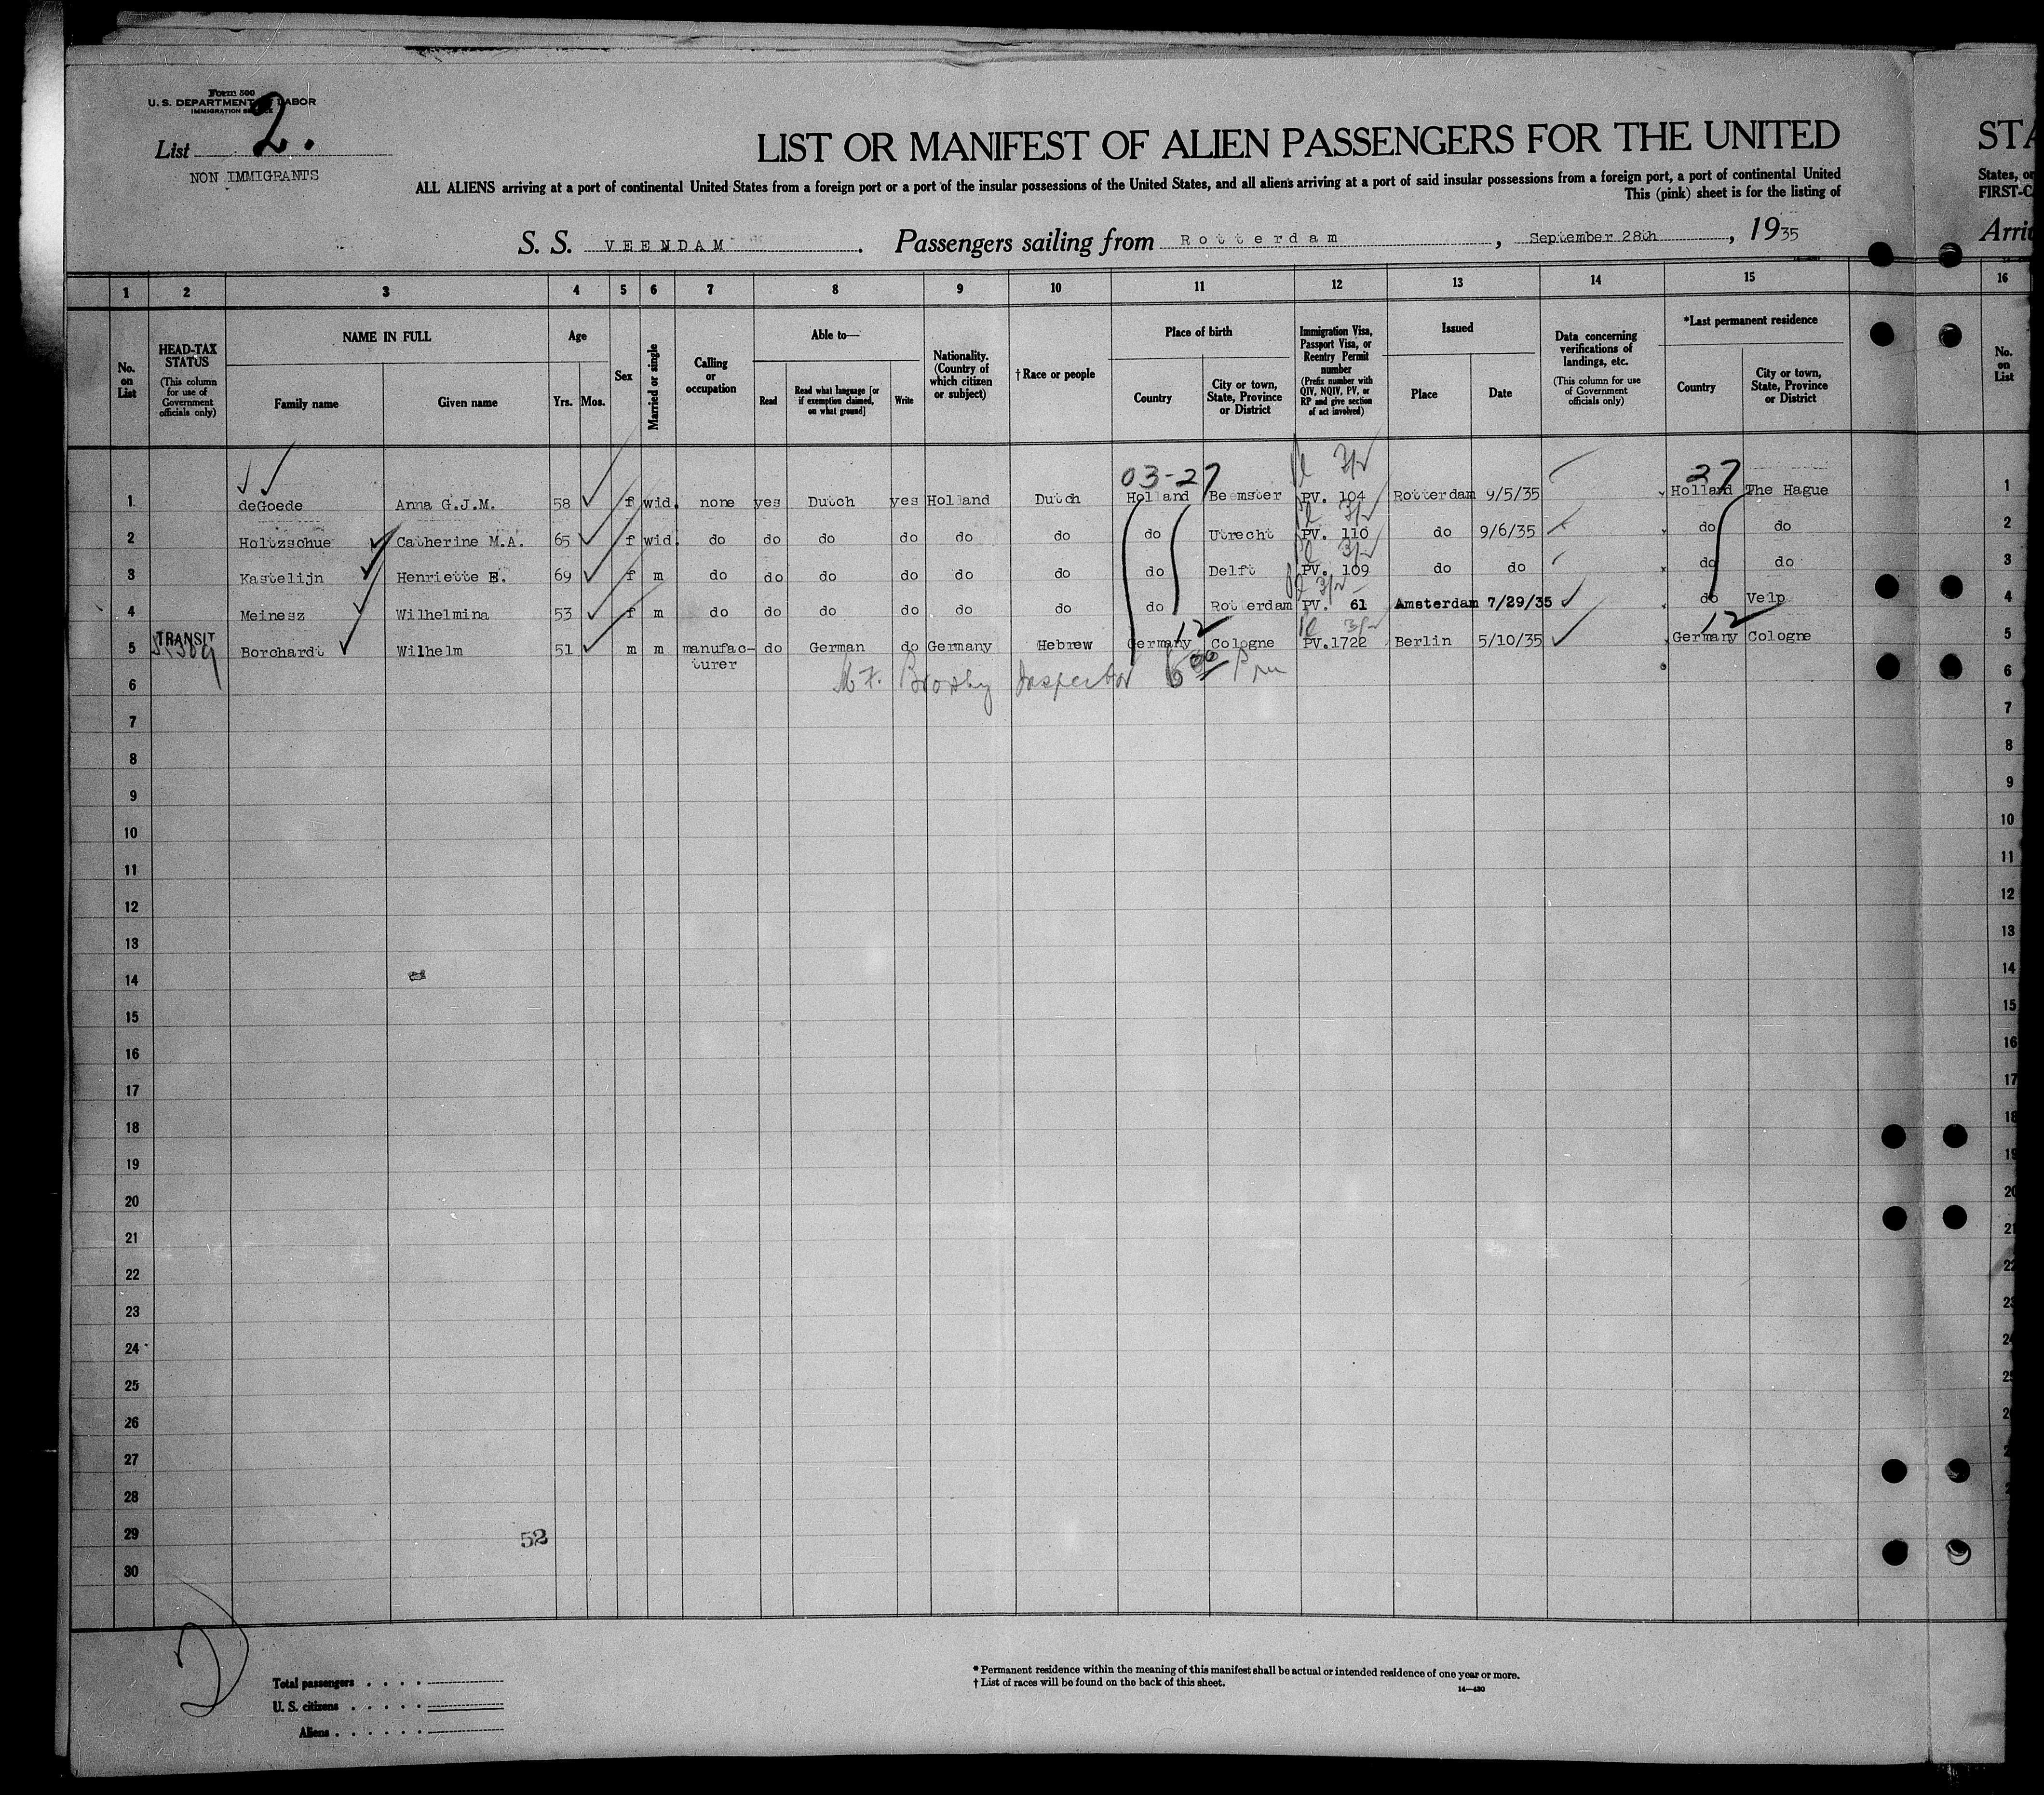 Form 500
U. S. DEPARTMENT OF LABOR
IMMIGRATION SERVICE
List 2.
NON IMMIGRANTS
LIST OR MANIFEST OF ALIEN PASSENGERS FOR THE UNITED
STA
ALL ALIENS arriving at a port of continental United States from a foreign port or a port of the insular possessions of the United States, and all aliens arriving at a port of said insular possessions from a foreign port, a port of continental United
States, or
This (pink) sheet is for the listing of
FIRST-C
S. S. VEENDAM. Passengers sailing from Rotterdam, September 28th, 1935
Arri
1 2 3 4 5 6 7 8 9 10 11 12 13 14 15 16
No. on List
HEAD-TAX STATUS
(This column for use of Government officials only)
NAME IN FULL
Family name
Given name
Age
Yrs. Mos.
Sex
Married or single
Calling or occupation
Able to—
Read
Read what language [or if exemption claimed, on what ground]
Write
Nationality. (Country of which citizen or subject)
† Race or people
Place of birth
Country
City or town, State, Province or District
Immigration Visa, Passport Visa, or Reentry Permit number
(Prefix number with QIV, NQIV, PV, or RP and give section of act involved)
Issued
Place
Date
Data concerning verifications of landings, etc.
(This column for use of Government officials only)
*Last permanent residence
Country
City or town, State, Province or District
No. on List
03-27 3/2 27
1 deGoede Anna G.J.M. 58 f wid. none yes Dutch yes Holland Dutch Holland Beemster PV. 104 Rotterdam 9/5/35 Holland The Hague 1
3/2
2 Holtzschue Catherine M.A. 65 f wid. do do do do do do do Utrecht PV. 110 do 9/6/35 do do 2
3/2
3 Kastelijn Henriette E. 69 f m do do do do do do do Delft PV. 109 do do do do 3
3/2
4 Meinesz Wilhelmina 53 f m do do do do do do do Rotterdam PV. 61 Amsterdam 7/29/35 do Velp 4
TRANSIT 12 3/2 12
5 Borchardt Wilhelm 51 m m manufac- do German do Germany Hebrew Germany Cologne PV.1722 Berlin 5/10/35 Germany Cologne 5
turer
6 Inspector 6 00 Pm 6
7 7
8 8
9 9
10 10
11 11
12 12
13 13
14 14
15 15
16 16
17 17
18 18
19 19
20 20
21 21
22 22
23 23
24 24
25 25
26 26
27 2
28 2
29
52
30
D
Total passengers . . . .
U. S. citizens . . . . .
Aliens . . . . . .
* Permanent residence within the meaning of this manifest shall be actual or intended residence of one year or more.
† List of races will be found on the back of this sheet.
14—430